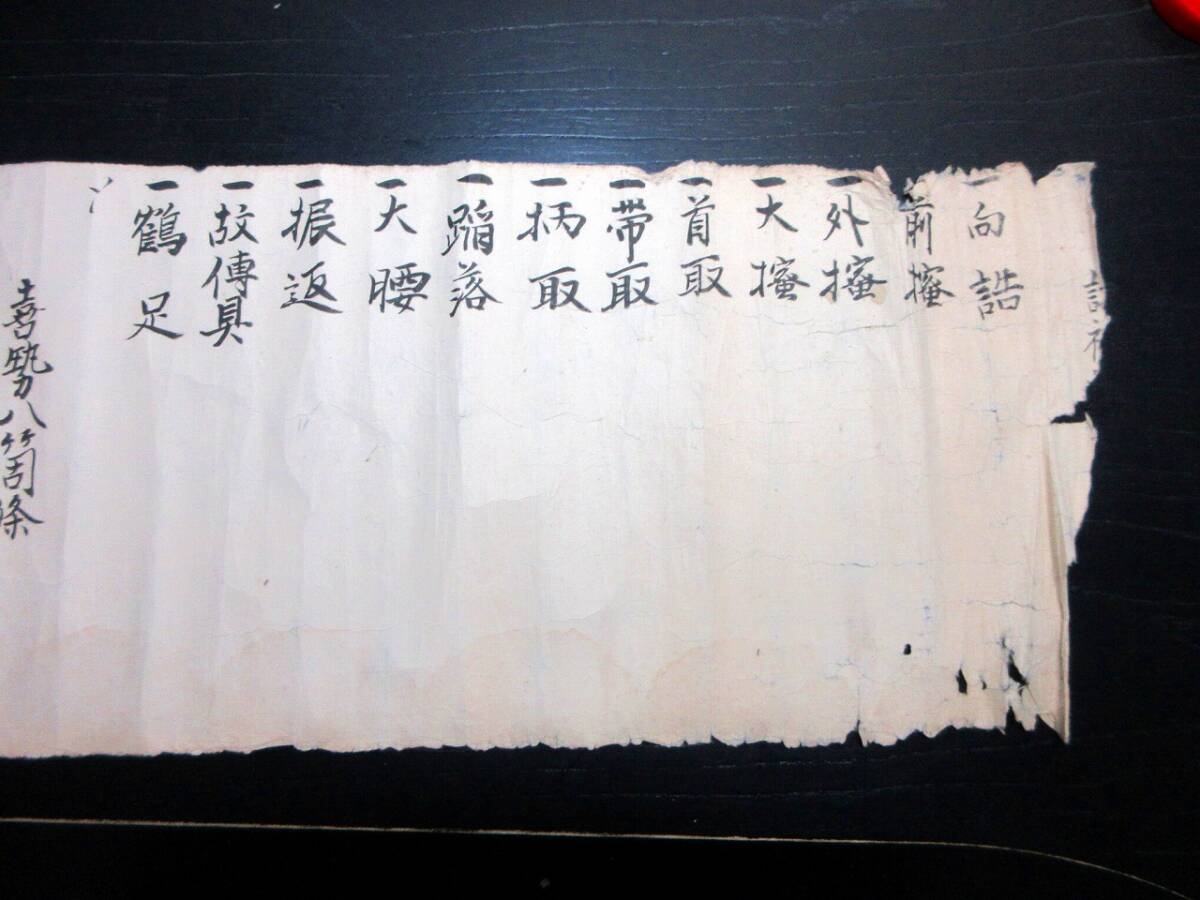 一向詰
前搔
一外搔
一大搔
一首取
一帯取
一柄取
一蹈落
一大腰
一振返
一故傳具
一鶴足
喜勢八箇條